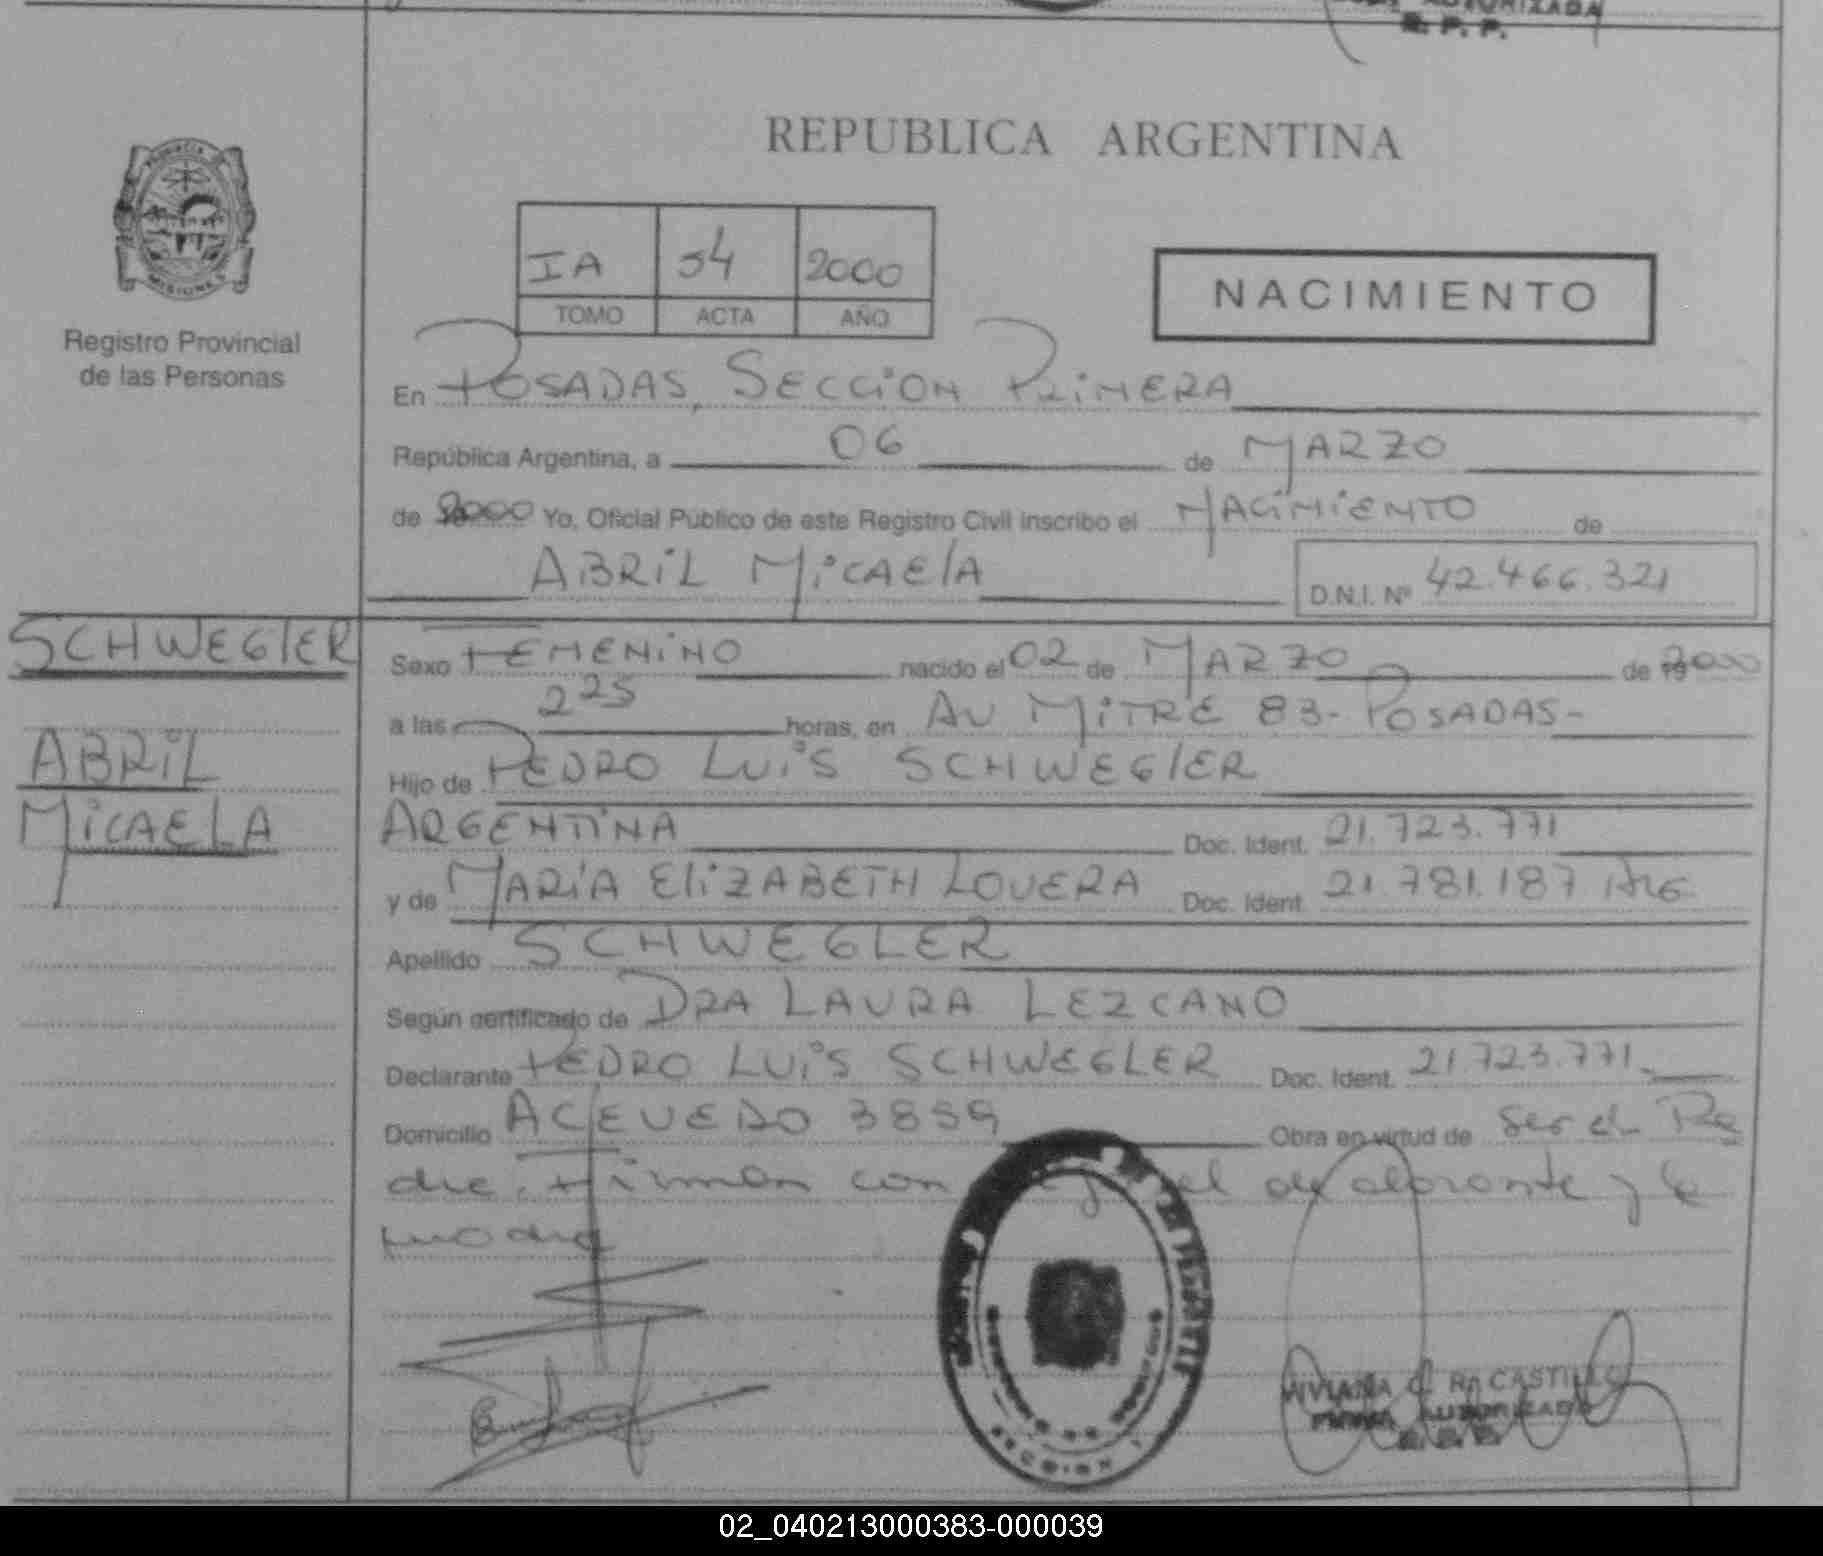 AUTORIZADA
R. P. P.
REPUBLICA ARGENTINA
IA 54 2000
TOMO ACTA AÑO
NACIMIENTO
PROVINCIA
MISIONES
Registro Provincial
de las Personas
En POSADAS, SECCION PRIMERA
República Argentina, a 06 de MARZO
de 2000 Yo, Oficial Público de este Registro Civil inscribo el NACIMIENTO de
ABRIL MICAElA D.N.I. Nº 42.466.321
SCHWEGlER
ABRIL
MICAELA
Sexo FEMENINO nacido el 02 de MARZO de 2000
a las 2 25 horas, en AV MITRE 83- POSADAS-
Hijo de PEDRO LUIS SCHWEGlER
ARGENTINA Doc. Ident. 21.723.771
y de MARIA ElIZABETH LOVERA Doc. Ident. 21.781.187 ARG
Apellido SCHWEGLER
Según certificado de DRA LAURA LEZCANO
Declarante PEDRO LUIS SCHWEGLER Doc. Ident. 21.723.771.
Domicilio ACEVEDO 3859 Obra en virtud de ser el Pa
dre. Firman con el declarante y la
madre
VIVIANA R. CASTILLO
FIRMA AUTORIZADA
R. P. P.
02_040213000383-000039